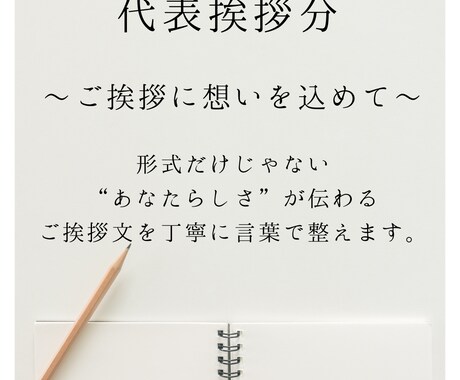 代表挨拶分
～ご挨拶に想いを込めて～
形式だけじゃない
“あなたらしさ”が伝わる
ご挨拶文を丁寧に言葉で整えます。